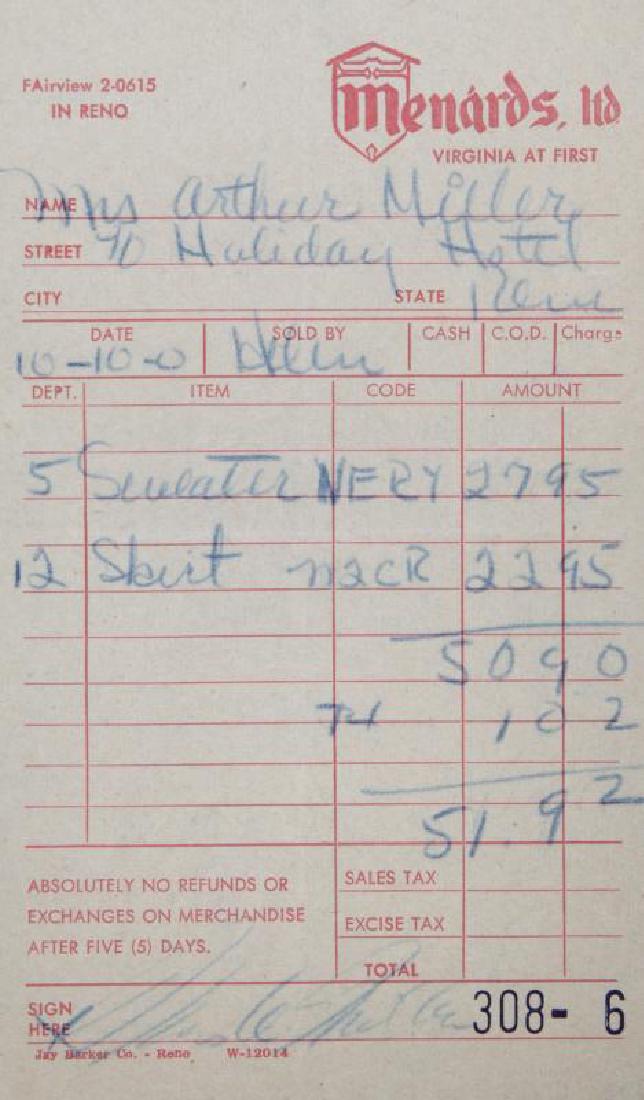 FAirview 2-0615
IN RENO
Menards, ltd
VIRGINIA AT FIRST
NAME Mrs Arthur Miller
STREET % Holiday Hotel
CITY STATE Reno
DATE SOLD BY CASH C.O.D. Charge
10-10-0 Helen
DEPT. ITEM CODE AMOUNT
5 Sweater NERY 27 95
12 Skirt n2CR 22 95
50 90
1 02
51.92
ABSOLUTELY NO REFUNDS OR
EXCHANGES ON MERCHANDISE
AFTER FIVE (5) DAYS.
SALES TAX
EXCISE TAX
TOTAL
SIGN
HERE
308- 6
Jay Barker Co. - Reno W-12014